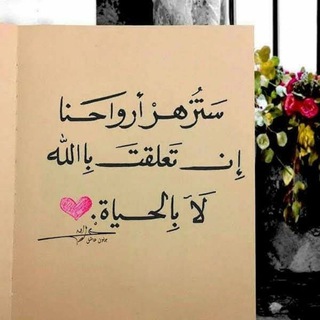 سَتُزهرْ أرواحَنا
إن تَعلقتَ بِالله
لَا بِالحياة.